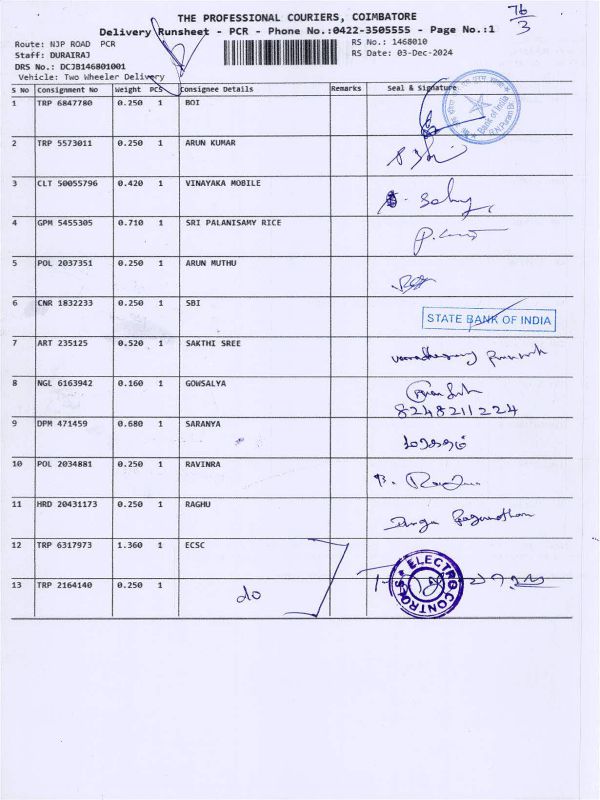 76/3
THE PROFESSIONAL COURIERS, COIMBATORE
Delivery Runsheet - PCR - Phone No.:0422-3505555 - Page No.:1
Route: NJP ROAD PCR RS No.: 1468010
Staff: DURAIRAJ RS Date: 03-Dec-2024
DRS No.: DCJB146801001
Vehicle: Two Wheeler Delivery
S No Consignment No Weight PCS Consignee Details Remarks Seal & Signature
1 TRP 6847780 0.250 1 BOI Bank of India
2 TRP 5573011 0.250 1 ARUN KUMAR
3 CLT 50055796 0.420 1 VINAYAKA MOBILE
4 GPM 5455305 0.710 1 SRI PALANISAMY RICE
5 POL 2037351 0.250 1 ARUN MUTHU
6 CNR 1832233 0.250 1 SBI STATE BANK OF INDIA
7 ART 235125 0.520 1 SAKTHI SREE
8 NGL 6163942 0.160 1 GOWSALYA
8248211224
9 DPM 471459 0.680 1 SARANYA
10 POL 2034881 0.250 1 RAVINRA
11 HRD 20431173 0.250 1 RAGHU
12 TRP 6317973 1.360 1 ECSC ELECTRO CONTROLS
13 TRP 2164140 0.250 1 do